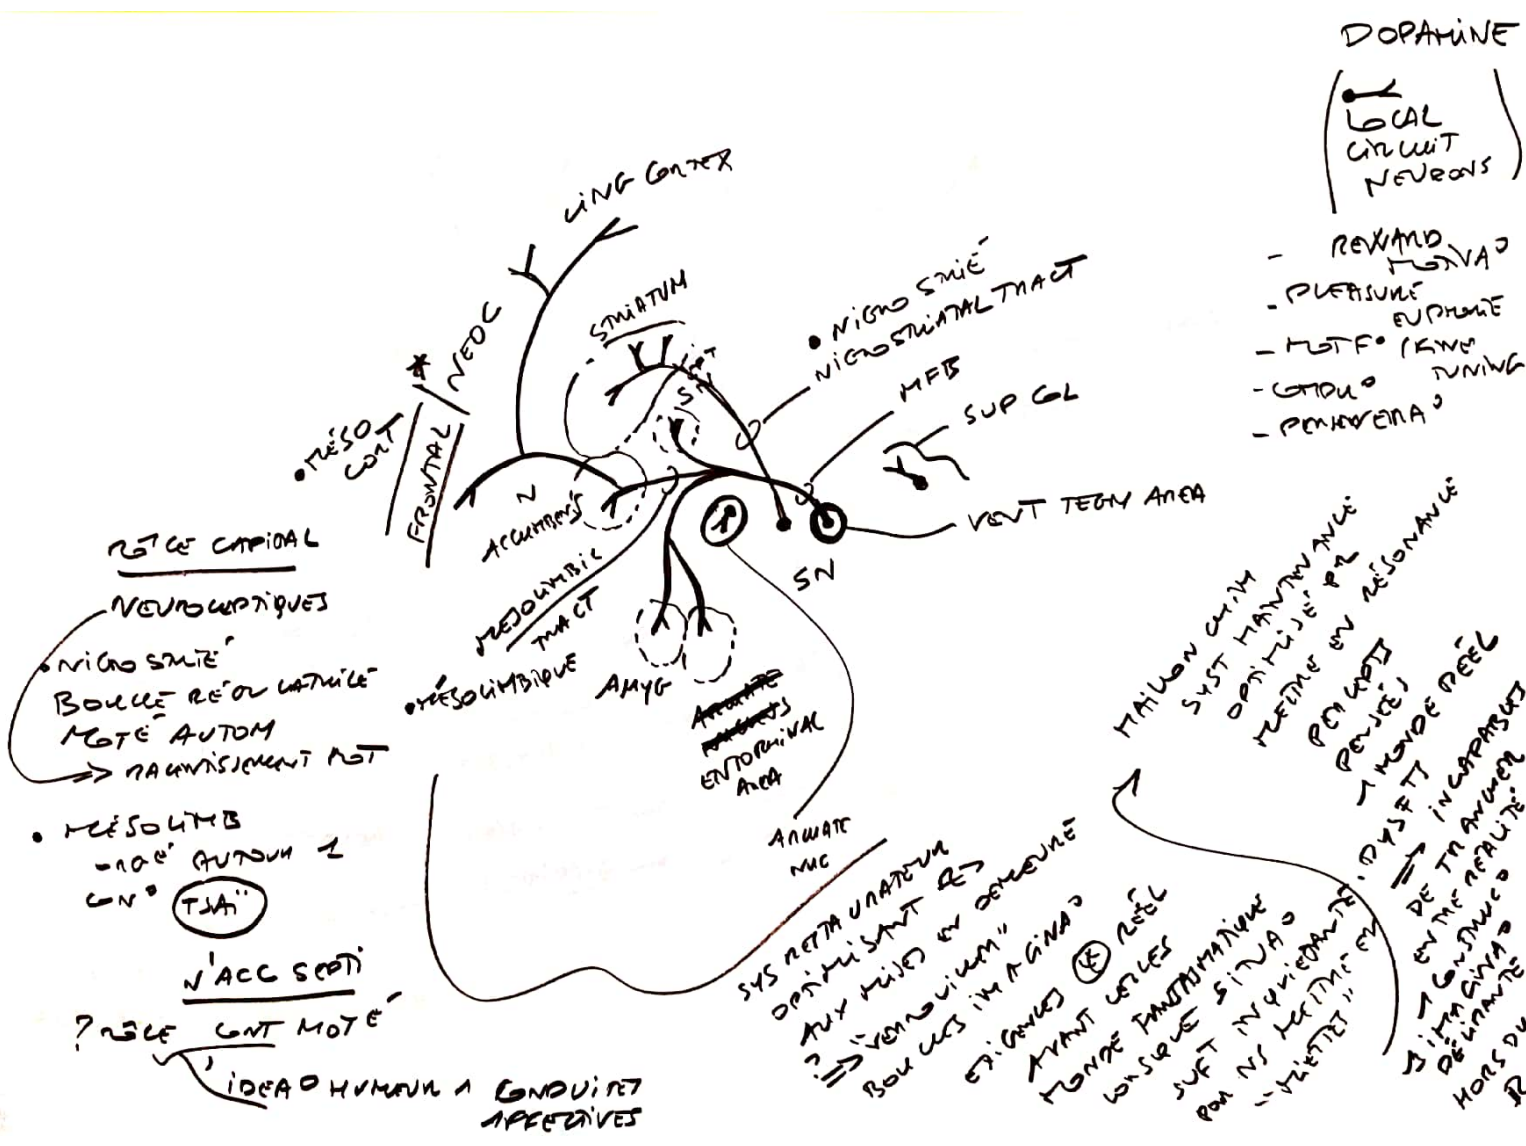 DOPAMINE
LOCAL
CIRCUIT
NEURONS
- REWARD
MOTIVA°
- PLEASURE
EUPHORIE
- MOTF°
TUNING
CING CORTEX
NEOC
STRIATUM
• NIGRO STRIÉ
NIGROSTRIATAL TRACT
MFB
SUP COL
VENT TEGM AREA
SN
• MÉSO
CORT
FRONTAL
N
ACCUMBENS
MESOLIMBIC
TRACT
• MÉSOLIMBIQUE
AMYG
ENTORHINAL
AREA
ARCUATE
NUC
RÔLE CAPIDAL
NEUROLEPTIQUES
• NIGRO STRIÉ
BOUCLE RÉGULATRICE
MOTÉ AUTOM
=> RALENTISSEMENT MOT
• MÉSOLIMB
AUTOUR 1
CON°
TSAÏ
N'ACC SEPTI
? RÔLE CONT MOTÉ
IDEA° HUMEUR 1 CONDUITES
AFFECTIVES
SYS RESTAURATEUR
OPTIMISANT
AUX MISES EN DEMEURE
? => "VERROUILLER"
BOUCLES IMAGINA°
EXIGENCES RÉEL
AVANT CELLES
MONDE FANTASMATIQUE
LORSQUE SITUA°
SUFT INQUIÉDANTE
POUR NS METTRE EN
"MIETTES"
MAILLON
SYST MAINTENANCE
OPTIMISÉ PR
METTRE EN RÉSONANCE
PERCEPTS
PENSÉES
1 MONDE RÉEL
. DYSFT
=> INCAPABLES
DE TRANCHER
ENTRE RÉALITÉ
1 CONSTRUC°
IMAGINA°
DÉLIRANTE
HORS DU